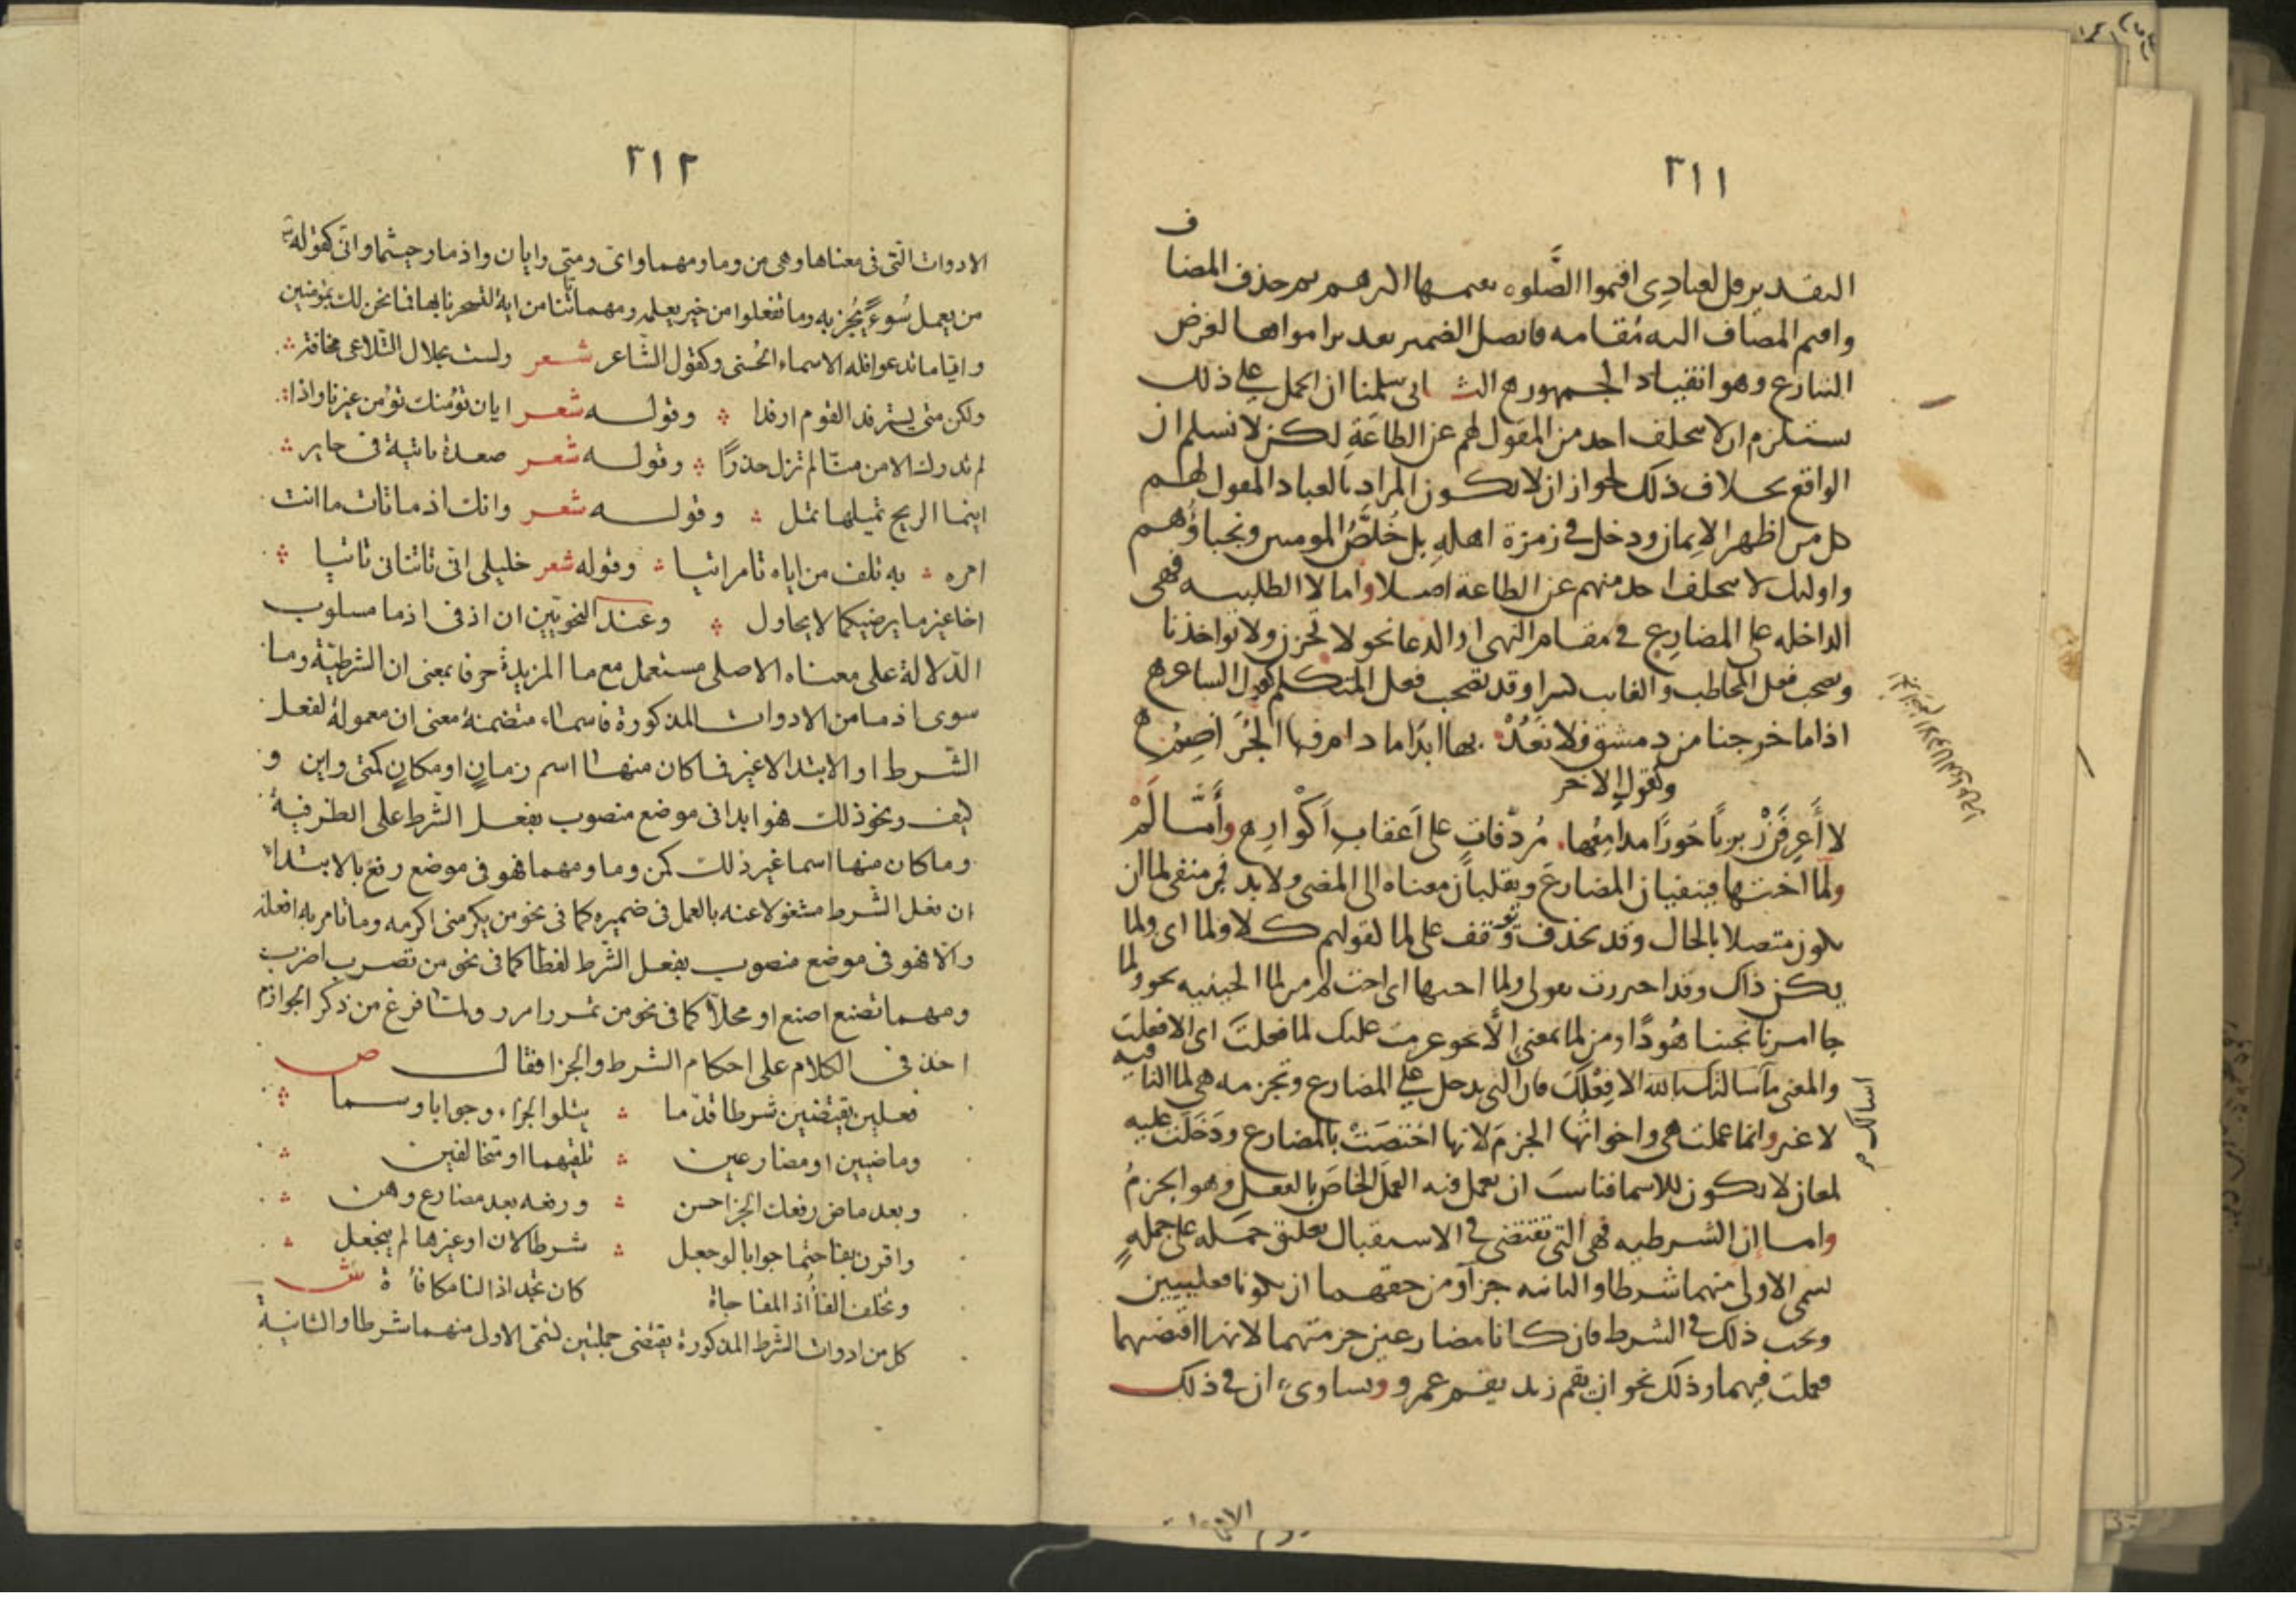 ٣١١
التقدير قل لعبادي اقيموا الصَّلوه يقيموها الدرهم ثم حذف المضاف
واقيم المضاف اليه مُقامه فاتصل الضمير بعد براموا لغرض
الشارع وهو انقياد الجمهور ه الثانى سلمنا ان الحمل على ذلك
يستلزم ان لا يتخلف احد من المقول لهم عن الطاعَةِ لكن لا نسلم ان
الواقع بخلاف ذلك لجواز ان لا يكون المراد بالعباد المقول لهم
كل من اظهر الايمان ودخل في زمرة اهلهِ بل خُلَّصُ المومنين ونجباؤُهم
واوليك لا يتخلف احد منهم عن الطاعة اصلا واما لا الطلبيه فهى
الداخله على المضارع في مقام النهى او الدعا نحو لا تحزن ولا تواخذنا
وتصحب فعل المخاطب والغايب كثيرا وقد تصحب فعل المتكلم كقول الشاعر ه
اذا ما خرجنا من دمشق فلا نَعُدْ . بها ابدًا ما دام فيها الجُرَاضِمُ ه
وكقول الاخر
لا أَعرِفَنْ ربربًا حُورًا مدامعُها. مُردَّفاتٍ على اَعقابِ اَكْوارِ ه وأمَّا لَمْ
ولَمَّا اختها فينفيان المضارعَ ويقلبان معناه الى المضى ولا بد في منفى لما ان
يكون متصلا بالحال وقد يحذف ويوقف على لما لقولهم كلا ولما اى ولما
يكن ذاك وقد احترزت بقولى ولما اختها اى اخت لم من لما الحينيه نحو ولما
جا امرنا نجينا هُودًا ومن لما بمعنى الَّا نحو عزمت عليك لما فعلتَ اى الا فعلت
والمعنى مآ سالتك بالله الا فِعْلَكَ فان التى تدخل على المضارع وتجزمه هى لما النافيه
لا غير وانما عملت هى واخواتُها الجزمَ لانها اختصَتْ بالمضارع ودَخَلَت عليه
لمعان لا تكون للاسما فناسبَ ان تعمل فيه العمَل الخاصَ بالفعل وهو الجزمُ
واما إن الشرطيه فهى التى تقتضى في الاستقبال تعليق جمله على جملهٍ
تسمى الاولى منهما شرطا والثانيه جزآ ومن حقهما ان يكونا فعليتين
ويجب ذلك في الشرط فان كانا مضارعين جزمتهما لانها اقتضتهما
فعملت فيهما وذلك نحو ان يقم زيد يقم عمرو ويساوى، ان في ذلك
٣١٢
الادوات التى فى معناها وهى من وما ومهما واى ومتى وايان واذما وحيثما وانّى كقوله تع
من يعمل سُوءً يُجز به وما تفعلوا من خير يعلمه ومهما تاتنا من اية لتسحرنا بها فما نحن لك بمؤمنين
وايّاما تدعوا فله الاسماء الحُسنى وكقول الشاعر شعر ولست بحلال التلاعى مخافة
ولكن متى يسترفد القوم ارفدا وقوله شعر ايان نؤمنك تؤمن غيرنا واذا
لم تدرك الامن منّا لم تزل حذرًا وقوله شعر صعدة نابتة فى حاير
اينما الريح تميلها تمل وقوله شعر وانك اذ ما تات ما انت
امره به تلف من اياه تامر اتيا وقوله شعر خليلى انى تاتنانى تاتيا
اخا غير ما يرضيكما لا يحاول وعند النحويّين ان اذ فى اذما مسلوب
الدّلالة على معناه الاصلى مستعمل مع ما المزيدة حرفا بمعنى ان الشرطيّة وما
سوى اذ ما من الادوات المذكورة فاسماء متضمنة معنى ان معمولة لفعل
الشرط او الابتدا لا غير فما كان منها اسم زمانٍ او مكانٍ كمتى واين و
كيف ونحو ذلك فهو ابدا فى موضع منصوب بفعل الشرط على الظرفية
وما كان منها اسما غير ذلك كمن وما ومهما فهو فى موضع رفع بالابتداء
ان فعل الشرط مشغولا عنه بالعمل فى ضميره كما فى نحو من يكرمنى اكرمه وما تامر به افعله
والّا فهو فى موضع منصوب بفعل الشرط لفظا كما فى نحو من تضرب اضرب
ومهما تصنع اصنع او محلاّ كما فى نحو من تمرر امرر ولمّا فرغ من ذكر الجوازم
اخذ فى الكلام على احكام الشرط والجزا فقال ص
فعلين يقتضين شرطا قدّما يتلوا الجزاء وجوابا وسما
وماضيين او مضارعين تلفيهما او متخالفين
وبعد ماض رفعك الجزا حسن ورفعه بعد مضارع وهن
واقرن بفا حتما جوابا لو جعل شرطا لان او غيرها لم ينجعل
وتخلف الفأ اذ المفاجاة كان تجد اذا لنا مكافأة ش
كل من ادوات الشرط المذكورة يقتضى جملتين تسمّى الاولى منهما شرطا والثانية